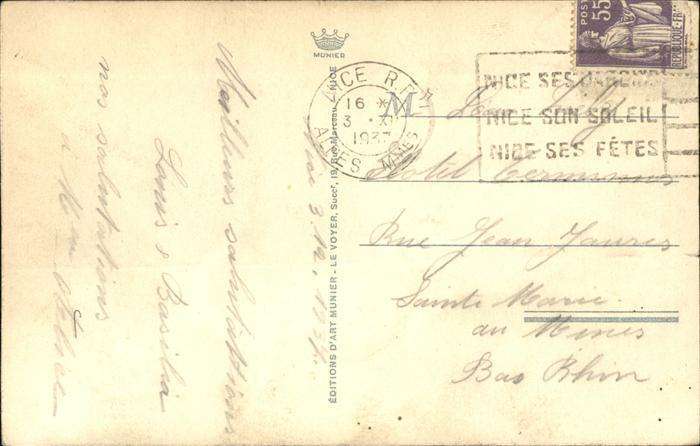 Meilleurs salutations
Louis & Basilia
nos salutations
MUNIER
ÉDITIONS D'ART MUNIER - LE VOYER, Succr, 19, Rue Marceau - NICE
Nice 3.12.1937.
NICE R.P.
16 H
3 - XII
1937
ALPES MMES
55
POSTES
REPUBLIQUE FR
NICE SES JARDINS
NICE SON SOLEIL
NICE SES FÊTES
M
Hotel
Rue Jean Jaures
Sainte Marie
au Mines
Bas Rhin